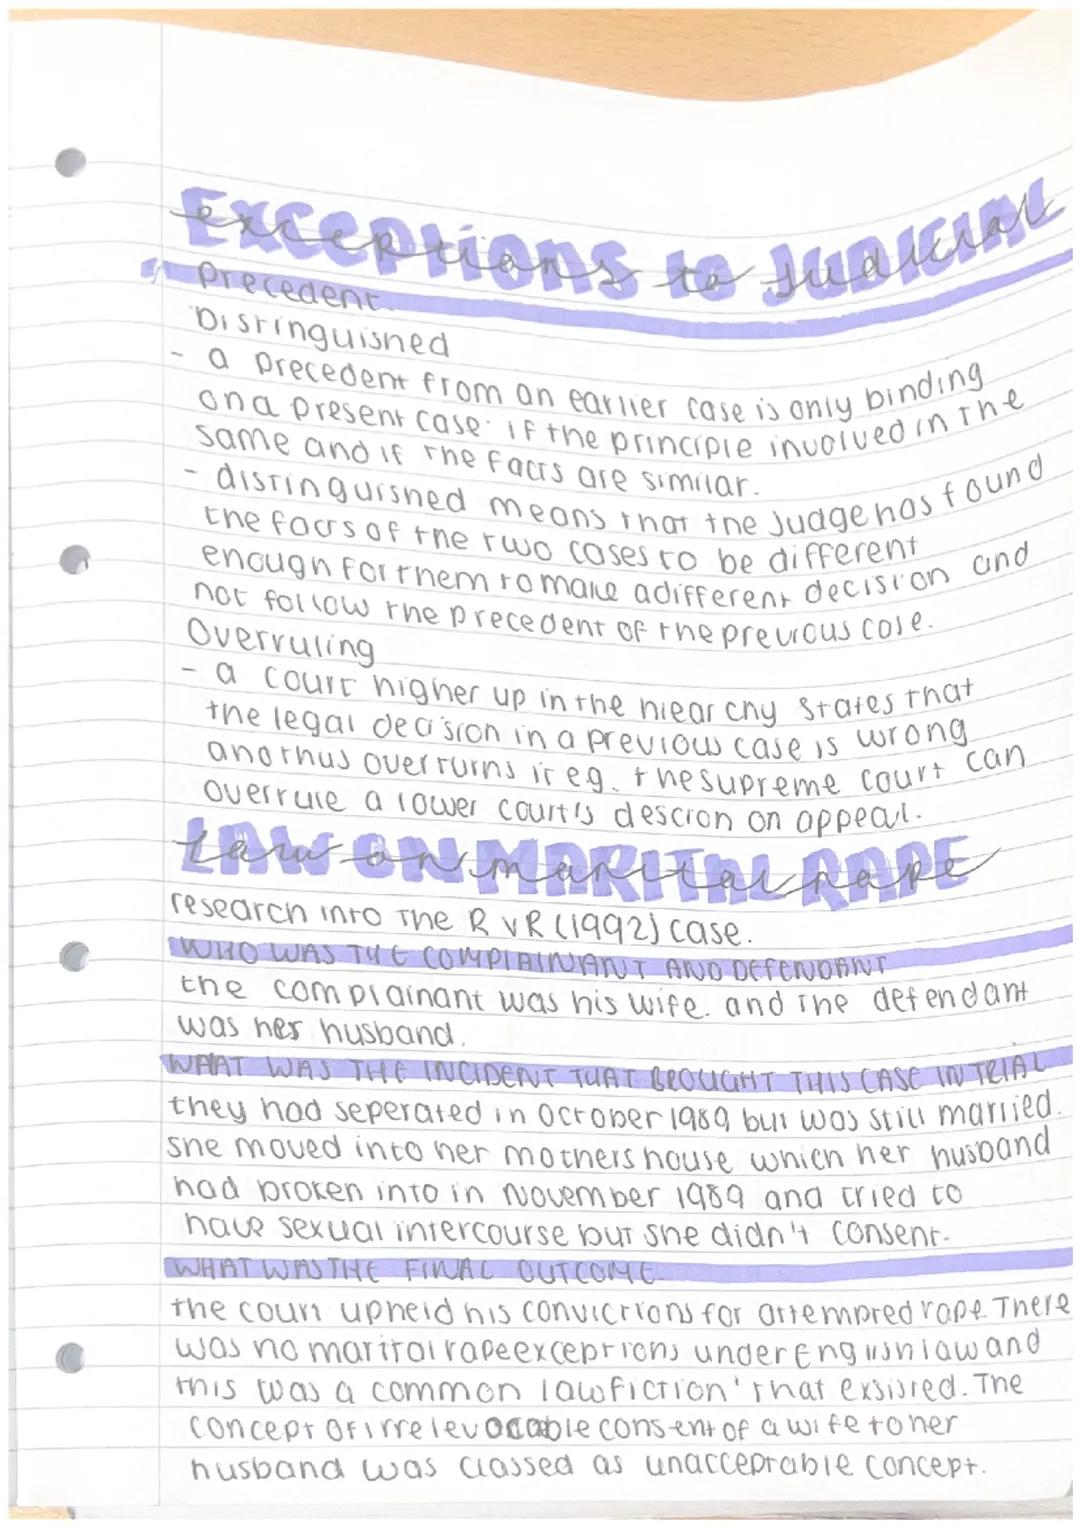 Exceptions to Judicial
precedent.
Distinguished
- a precedent from an earlier case is only binding
on a present case if the principle involved in the
same and if the facts are similar.
- distinguished means that the Judge has found
the facts of the two cases to be different
enough for them to make a different decision and
not follow the precedent of the previous case.
Overruling
- a court higher up in the hiearchy states that
the legal decision in a previous case is wrong
and thus overturns it eg. the supreme court can
overrule a lower court's descion on appeal.
Law on marital rape
research into the R v R (1992) case.
WHO WAS THE COMPLAINANT AND DEFENDANT
the complainant was his wife. and the defendant
was her husband.
WHAT WAS THE INCIDENT THAT BROUGHT THIS CASE IN TRIAL
they had seperated in October 1989 but was still married.
she moved into her mothers house which her husband
had broken into in November 1989 and tried to
have sexual intercourse but she didn't consent.
WHAT WAS THE FINAL OUTCOME
the court upheld his convictions for attempted rape. There
was no marital rape exceptions under English law and
this was a common law fiction' that exsisted. The
concept of irrelevocable consent of a wife to her
husband was classed as unacceptable concept.